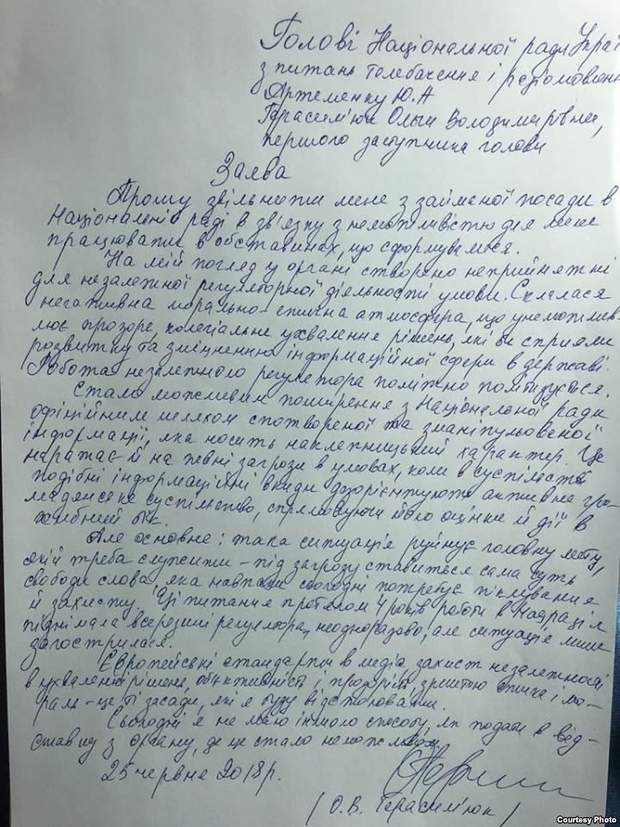 Голові Національної ради Украї
з питань телебачення і радіомовлення
Артеменку Ю.А
Герасим'юк Ольги Володимирівни,
першого заступника голови
Заява
Прошу звільнити мене з займаної посади в
Національній раді в зв'язку з неможливістю для мене
працювати в обставинах, що сформувалися.
На мій погляд у органі створено неприйнятні
для незалежної регуляторної діяльності умови. Склалася
негативна морально-етична атмосфера, що унеможлив-
лює прозоре, колегіальне ухвалення рішень, які би сприяли
розвитку та зміцненню інформаційної сфери в державі.
Робота незалежного регулятора помітно політизується.
Стало можливим поширення з Національної ради
офіційним шляхом спотвореної та зманіпульованої
інформації, яка носить наклепницький характер. Це
наражає й на певні загрози в умовах, коли в суспільстві
подібні інформаційні вкиди дезорієнтують активне гро-
мадянське суспільство, спрямовуючи його оцінки й дії в
хибний бік.
Але основне: така ситуація руйнує головну мету,
якій треба служити - під загрозу ставиться сама суть
свободи слова, яка навпаки сьогодні потребує піклування
й захисту. Ці питання протягом 4 років роботи в Нацраді я
піднімала всередині регулятора, неодноразово, але ситуація лише
загострилася.
Європейські стандарти в медіа, захист незалежності
в ухваленні рішень, об'єктивність і прозорість, зрештою етика і мо-
раль - це ті засади, які я буду відстоювати.
Сьогодні я не маю іншого способу, як подати в від-
ставку з органу, де це стало неможливим.
25 червня 2018 р.
/ О.В. Герасим'юк /
Courtesy Photo